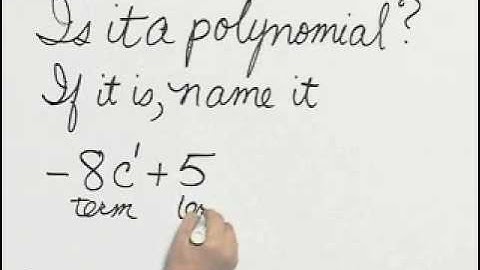 Is it a polynomial?
If it is, name it
-8c¹+5
term